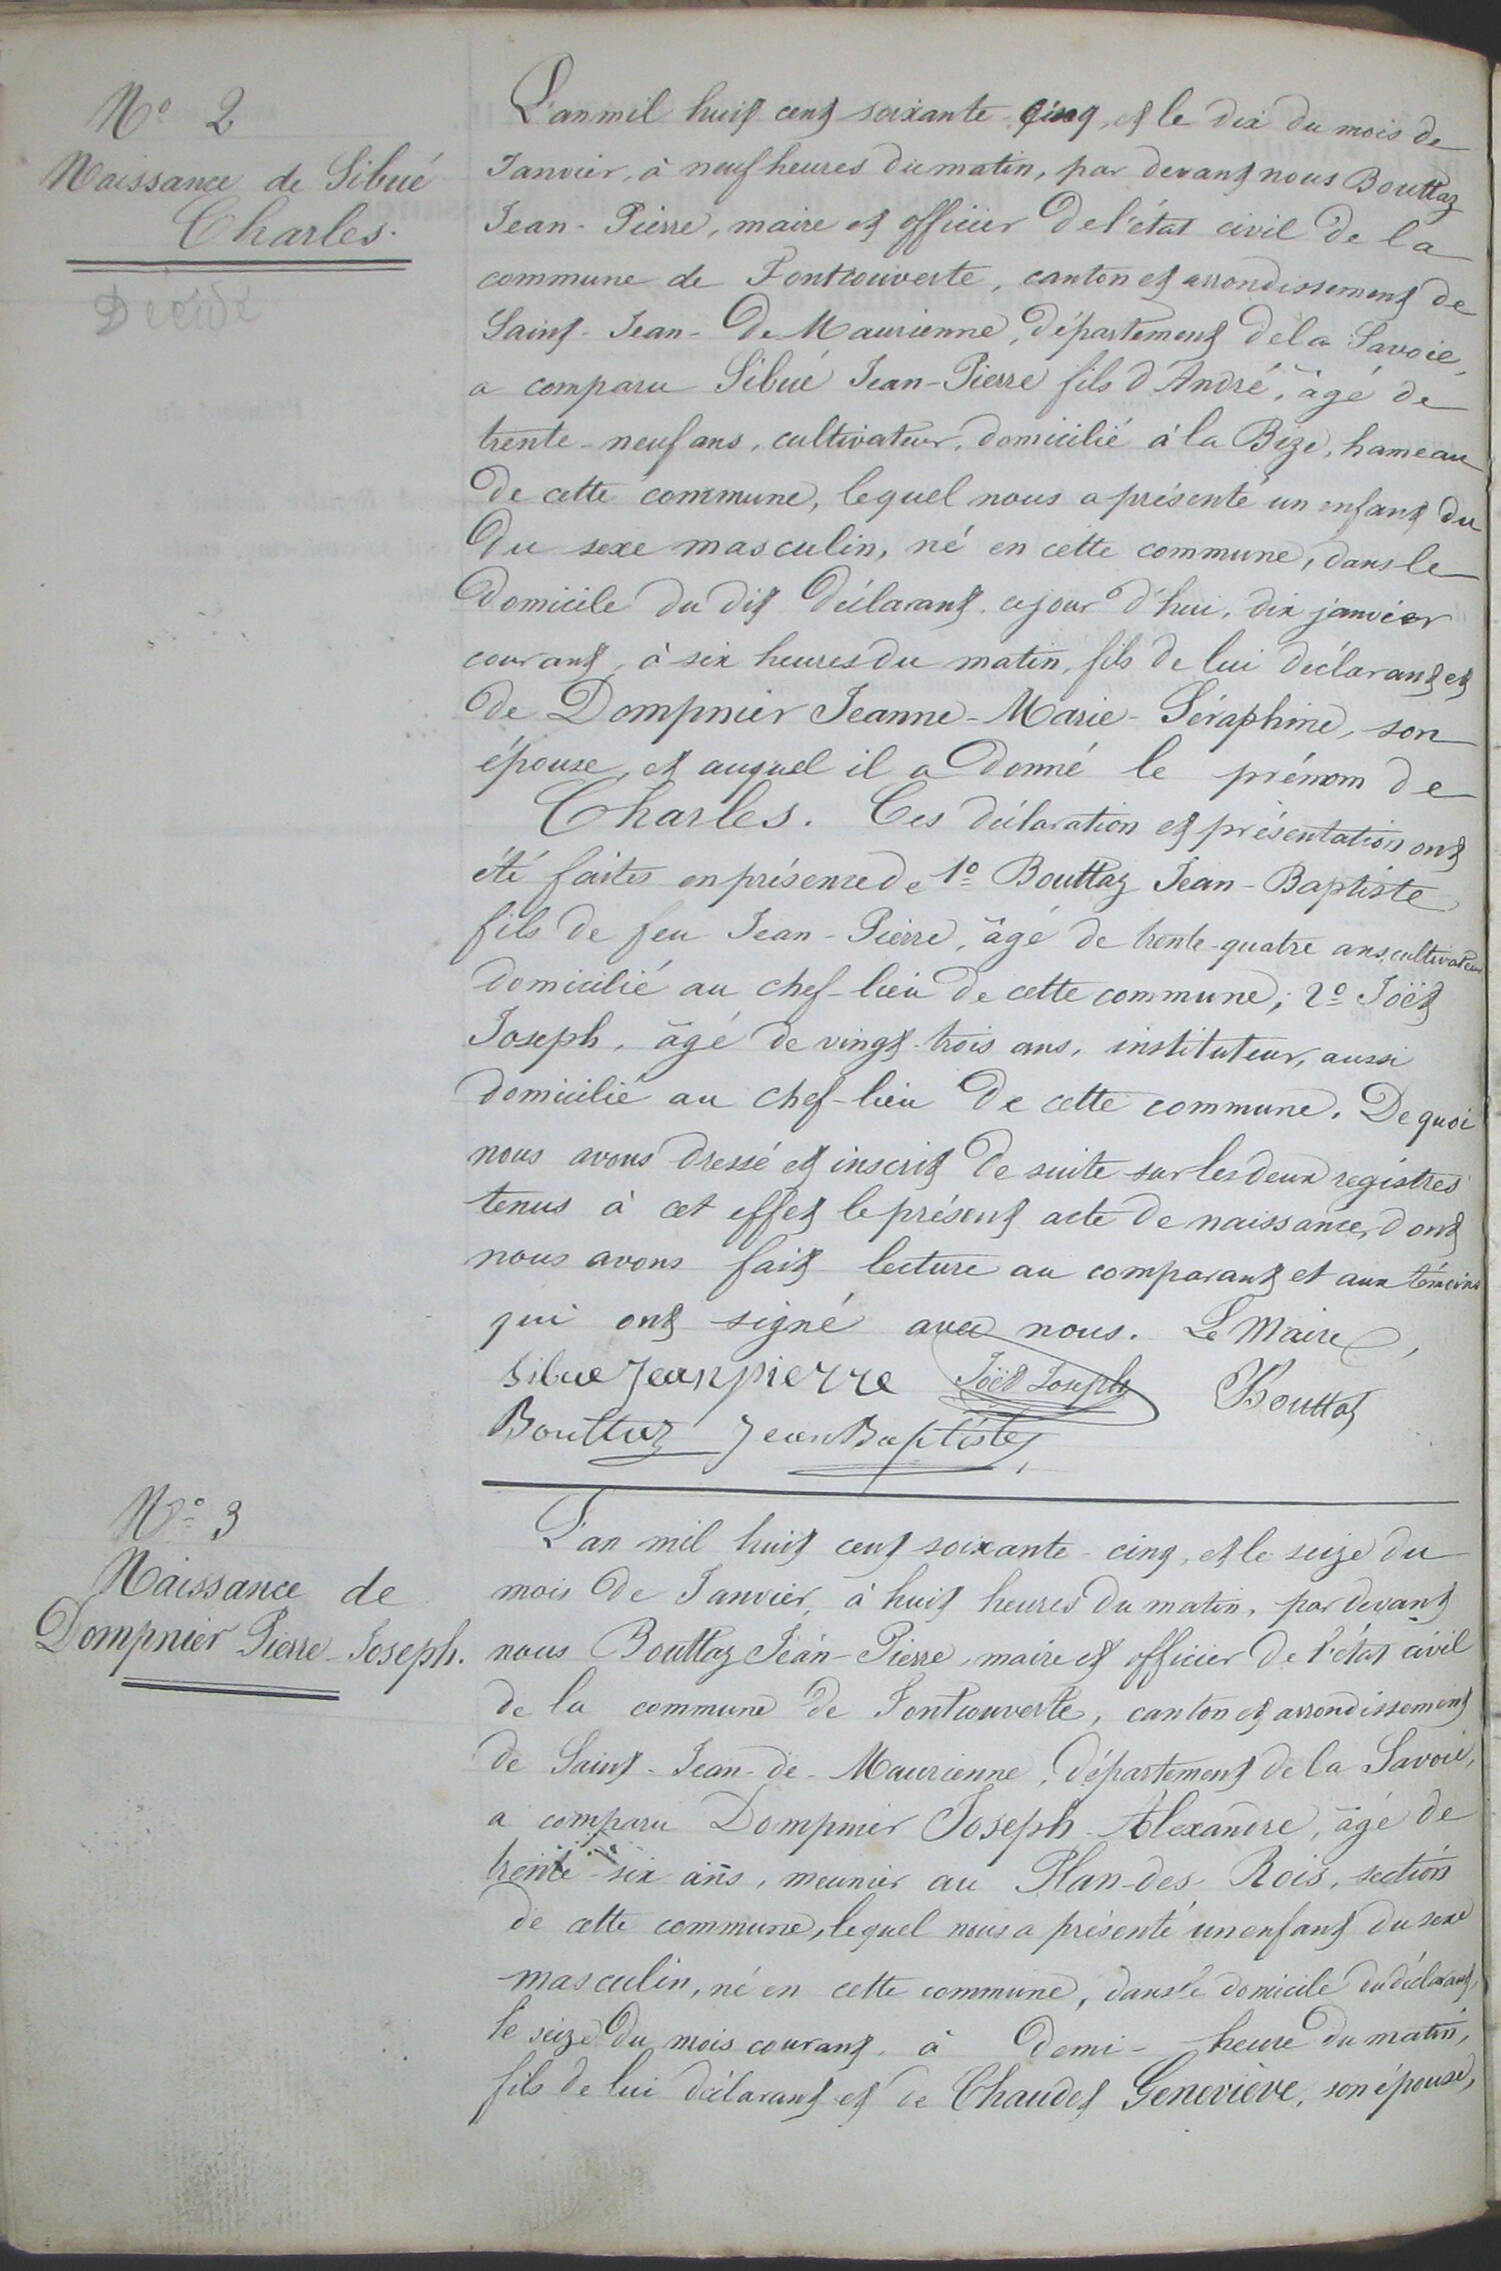 N° 2
Naissance de Sibué
Charles.
Décédé
L'an mil huit cent soixante cinq, et le dix du mois de
Janvier, à neuf heures du matin, par devant nous Bouttaz
Jean-Pierre, maire et officier de l'état civil de la
commune de Fontcouverte, canton et arrondissement de
Saint-Jean-De Maurienne, département de la Savoie,
a comparu Sibué Jean-Pierre fils d'André, âgé de
trente-neuf ans, cultivateur, domicilié à la Bize, hameau
de cette commune, lequel nous a présenté un enfant du
du sexe masculin, né en cette commune, dans le
domicile du dit déclarant cejour d'hui, dix janvier
courant, à six heures du matin, fils de lui déclarant et
de Dompnier Jeanne-Marie-Séraphine, son
épouse, et auquel il a donné le prénom de
Charles. Ces déclaration et présentation ont
été faites en présence de 1° Bouttaz Jean-Baptiste
fils de feu Jean-Pierre, âgé de trente-quatre ans, cultivateur
domicilié au chef-lieu de cette commune; 2° Joët
Joseph, âgé de vingt-trois ans, instituteur, aussi
domicilié au chef-lieu de cette commune. De quoi
nous avons dressé et inscrit de suite sur les deux registres
tenus à cet effet le présent acte de naissance, dont
nous avons fait lecture au comparant et aux témoins
qui ont signé avec nous. Le Maire,
Sibue Jeanpierre Joët Joseph Bouttaz
Bouttaz Jean Baptiste,
N° 3
Naissance de
Dompnier Pierre-Joseph.
L'an mil huit cent soixante-cinq, et le seize du
mois de Janvier, à huit heures du matin, par devant
nous Bouttaz Jean-Pierre, maire et officier de l'état civil
de la commune de Fontcouverte, canton et arrondissement
de Saint-Jean-de-Maurienne, département de la Savoie,
a comparu Dompnier Joseph-Alexandre, âgé de
trente-six ans, meunier au Plan-des-Rois, section
de cette commune, lequel nous a présenté un enfant du sexe
masculin, né en cette commune, dans le domicile du déclarant,
le seize du mois courant, à demi-heure du matin,
fils de lui déclarant et de Chaudet Geneviève, son épouse,